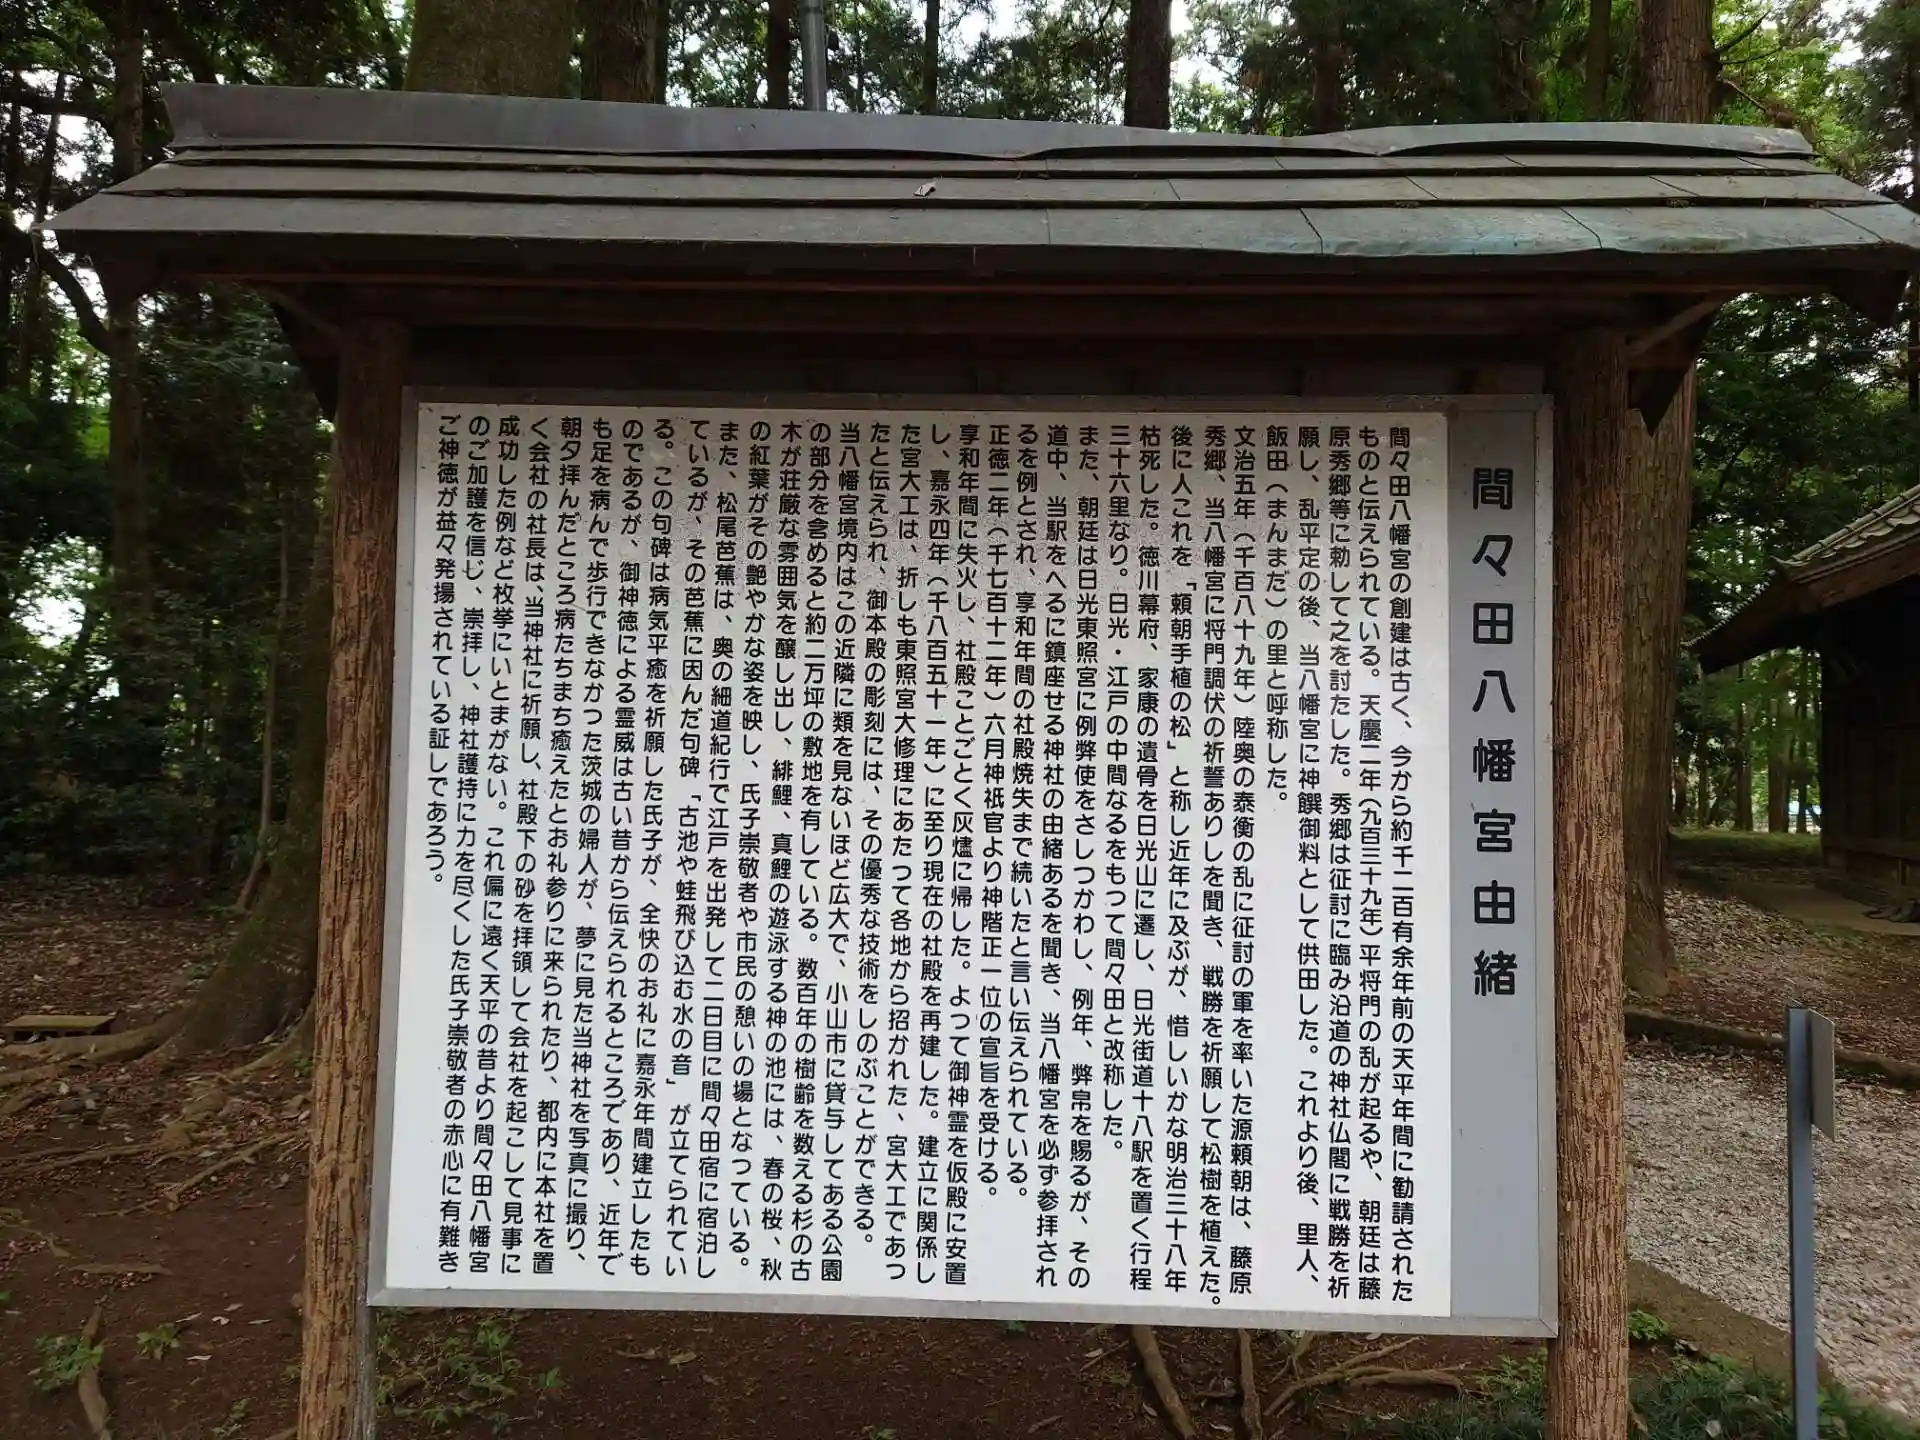 間々田八幡宮由緒
間々田八幡宮の創建は古く、今から約千二百有余年前の天平年間に勧請された
ものと伝えられている。天慶二年（九百三十九年）平将門の乱が起るや、朝廷は藤
原秀郷等に勅して之を討たした。秀郷は征討に臨み沿道の神社仏閣に戦勝を祈
願し、乱平定の後、当八幡宮に神饌御料として供田した。これより後、里人、
飯田（まんまだ）の里と呼称した。
文治五年（千百八十九年）陸奥の泰衡の乱に征討の軍を率いた源頼朝は、藤原
秀郷、当八幡宮に将門調伏の祈誓ありしを聞き、戦勝を祈願して松樹を植えた。
後に人これを「頼朝手植の松」と称し近年に及ぶが、惜しいかな明治三十八年
枯死した。徳川幕府、家康の遺骨を日光山に遷し、日光街道十八駅を置く行程
三十六里なり。日光・江戸の中間なるをもつて間々田と改称した。
また、朝廷は日光東照宮に例弊使をさしつかわし、例年、弊帛を賜るが、その
道中、当駅をへるに鎮座せる神社の由緒あるを聞き、当八幡宮を必ず参拝され
るを例とされ、享和年間の社殿焼失まで続いたと言い伝えられている。
正徳二年（千七百十二年）六月神祇官より神階正一位の宣旨を受ける。
享和年間に失火し、社殿ことごとく灰燼に帰した。よつて御神霊を仮殿に安置
し、嘉永四年（千八百五十一年）に至り現在の社殿を再建した。建立に関係し
た宮大工は、折しも東照宮大修理にあたつて各地から招かれた、宮大工であつ
たと伝えられ、御本殿の彫刻には、その優秀な技術をしのぶことができる。
当八幡宮境内はこの近隣に類を見ないほど広大で、小山市に貸与してある公園
の部分を含めると約二万坪の敷地を有している。数百年の樹齢を数える杉の古
木が荘厳な雰囲気を醸し出し、緋鯉、真鯉の遊泳する神の池には、春の桜、秋
の紅葉がその艶やかな姿を映し、氏子崇敬者や市民の憩いの場となつている。
また、松尾芭蕉は、奥の細道紀行で江戸を出発して二日目に間々田宿に宿泊し
ているが、その芭蕉に因んだ句碑「古池や蛙飛び込む水の音」が立てられてい
る。この句碑は病気平癒を祈願した氏子が、全快のお礼に嘉永年間建立したも
のであるが、御神徳による霊威は古い昔から伝えられるところであり、近年で
も足を病んで歩行できなかつた茨城の婦人が、夢に見た当神社を写真に撮り、
朝夕拝んだところ病たちまち癒えたとお礼参りに来られたり、都内に本社を置
く会社の社長は、当神社に祈願し、社殿下の砂を拝領して会社を起こして見事に
成功した例など枚挙にいとまがない。これ偏に遠く天平の昔より間々田八幡宮
のご加護を信じ、崇拝し、神社護持に力を尽くした氏子崇敬者の赤心に有難き
ご神徳が益々発揚されている証しであろう。